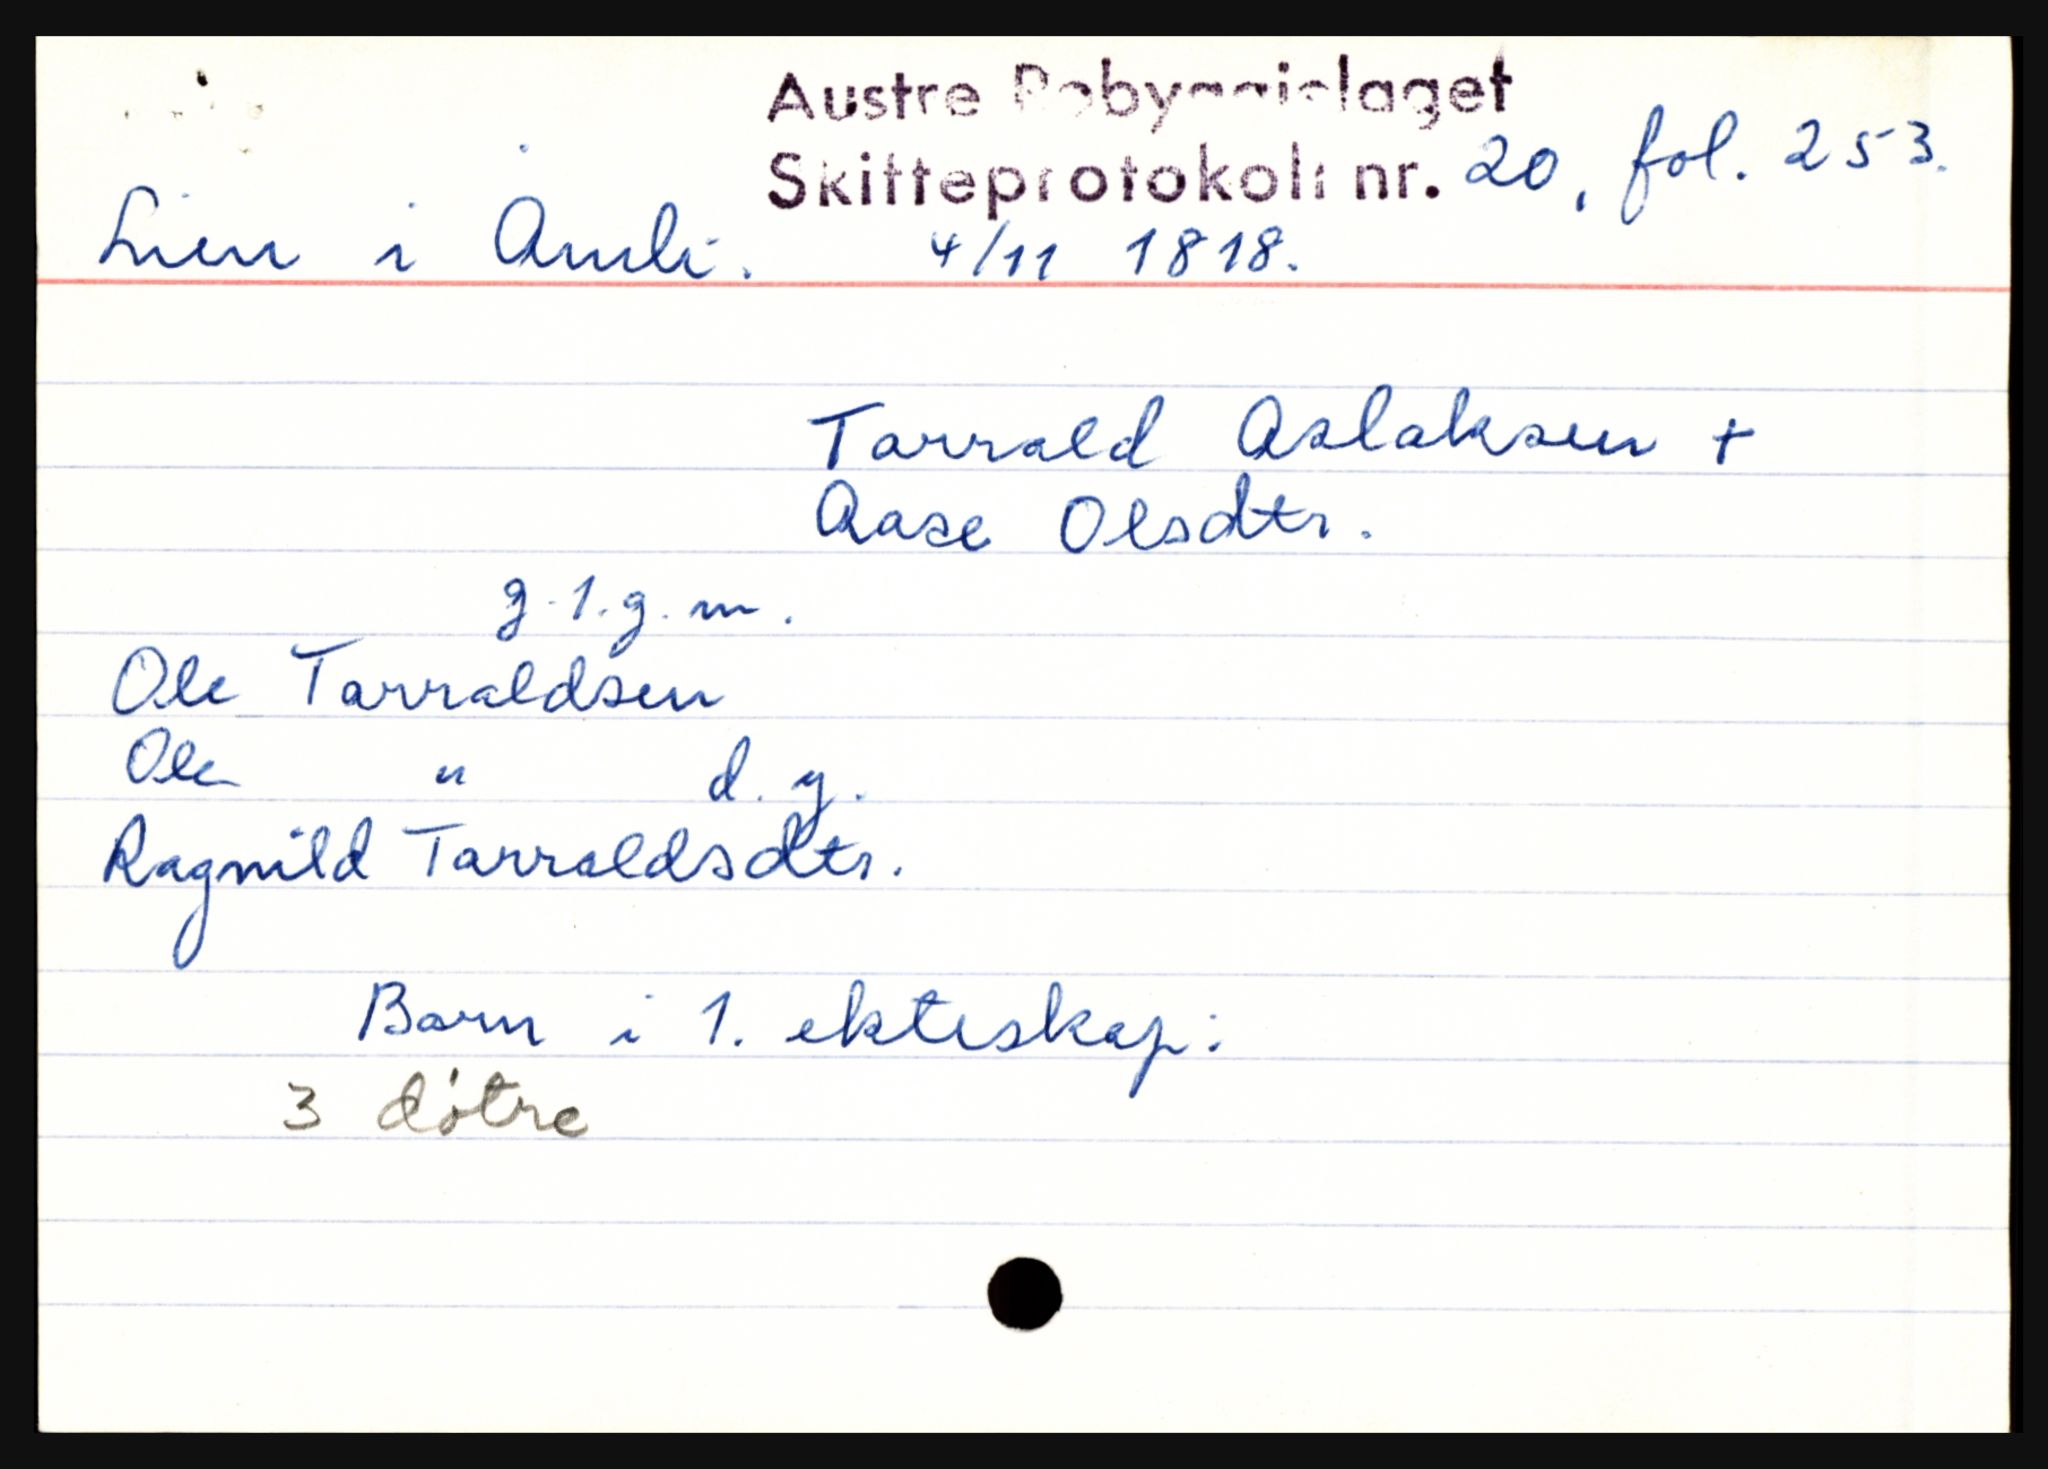 Austre Robyggjelaget
Skifteprotokoll nr. 20, fol. 253.
Lien i Åmli. 4/11 1818.
Tarrald Aslaksen +
Aase Olsdtr.
g. 1. g. m.
Ole Tarraldsen
Ole " d. y.
Ragnild Tarraldsdtr.
Barn i 1. ekteskap:
3 døtre